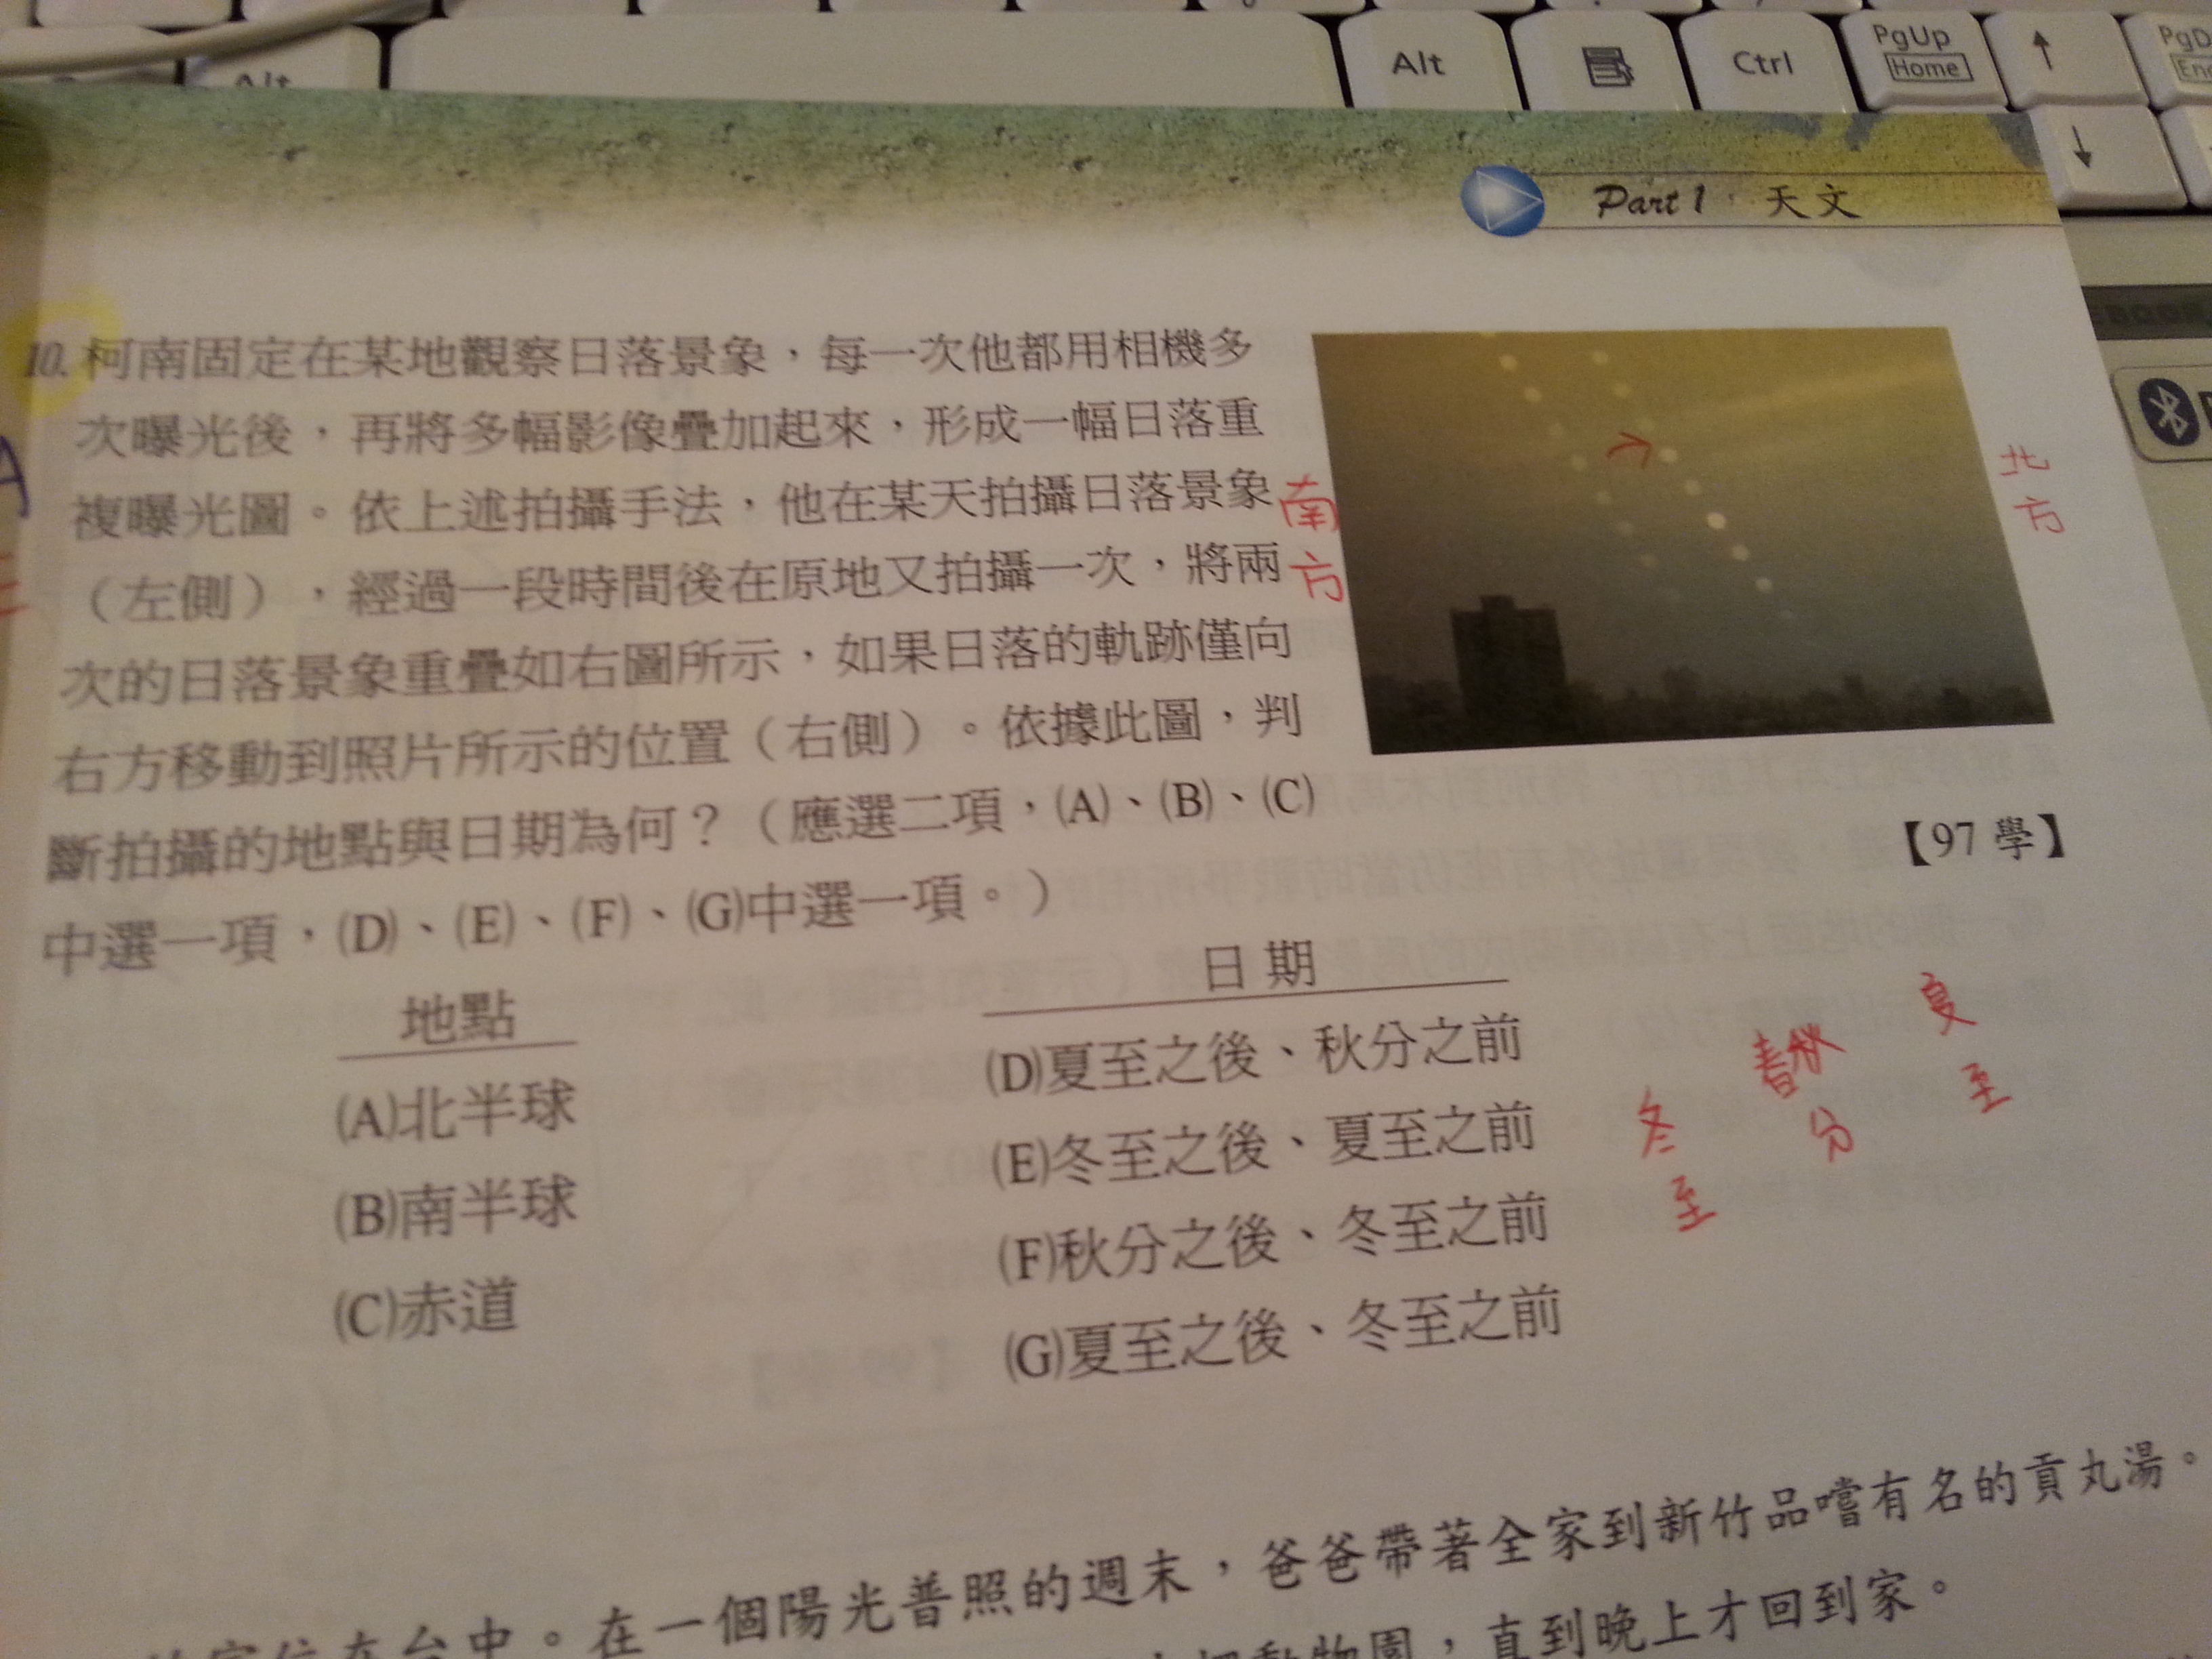 Alt
Alt
Ctrl
PgUp
Home
Part 1
天文
10. 柯南固定在某地觀察日落景象，每一次他都用相機多
次曝光後，再將多幅影像疊加起來，形成一幅日落重
複曝光圖。依上述拍攝手法，他在某天拍攝日落景象
（左側），經過一段時間後在原地又拍攝一次，將兩
次的日落景象重疊如右圖所示，如果日落的軌跡僅向
右方移動到照片所示的位置（右側）。依據此圖，判
斷拍攝的地點與日期為何？（應選二項，(A)、(B)、(C)
中選一項，(D)、(E)、(F)、(G)中選一項。）
南方
北方
【97 學】
地點
(A)北半球
(B)南半球
(C)赤道
日期
(D)夏至之後、秋分之前
(E)冬至之後、夏至之前
(F)秋分之後、冬至之前
(G)夏至之後、冬至之前
冬至
春秋分
夏至
台中。在一個陽光普照的週末，爸爸帶著全家到新竹品嚐有名的貢丸湯。
動物園，直到晚上才回到家。